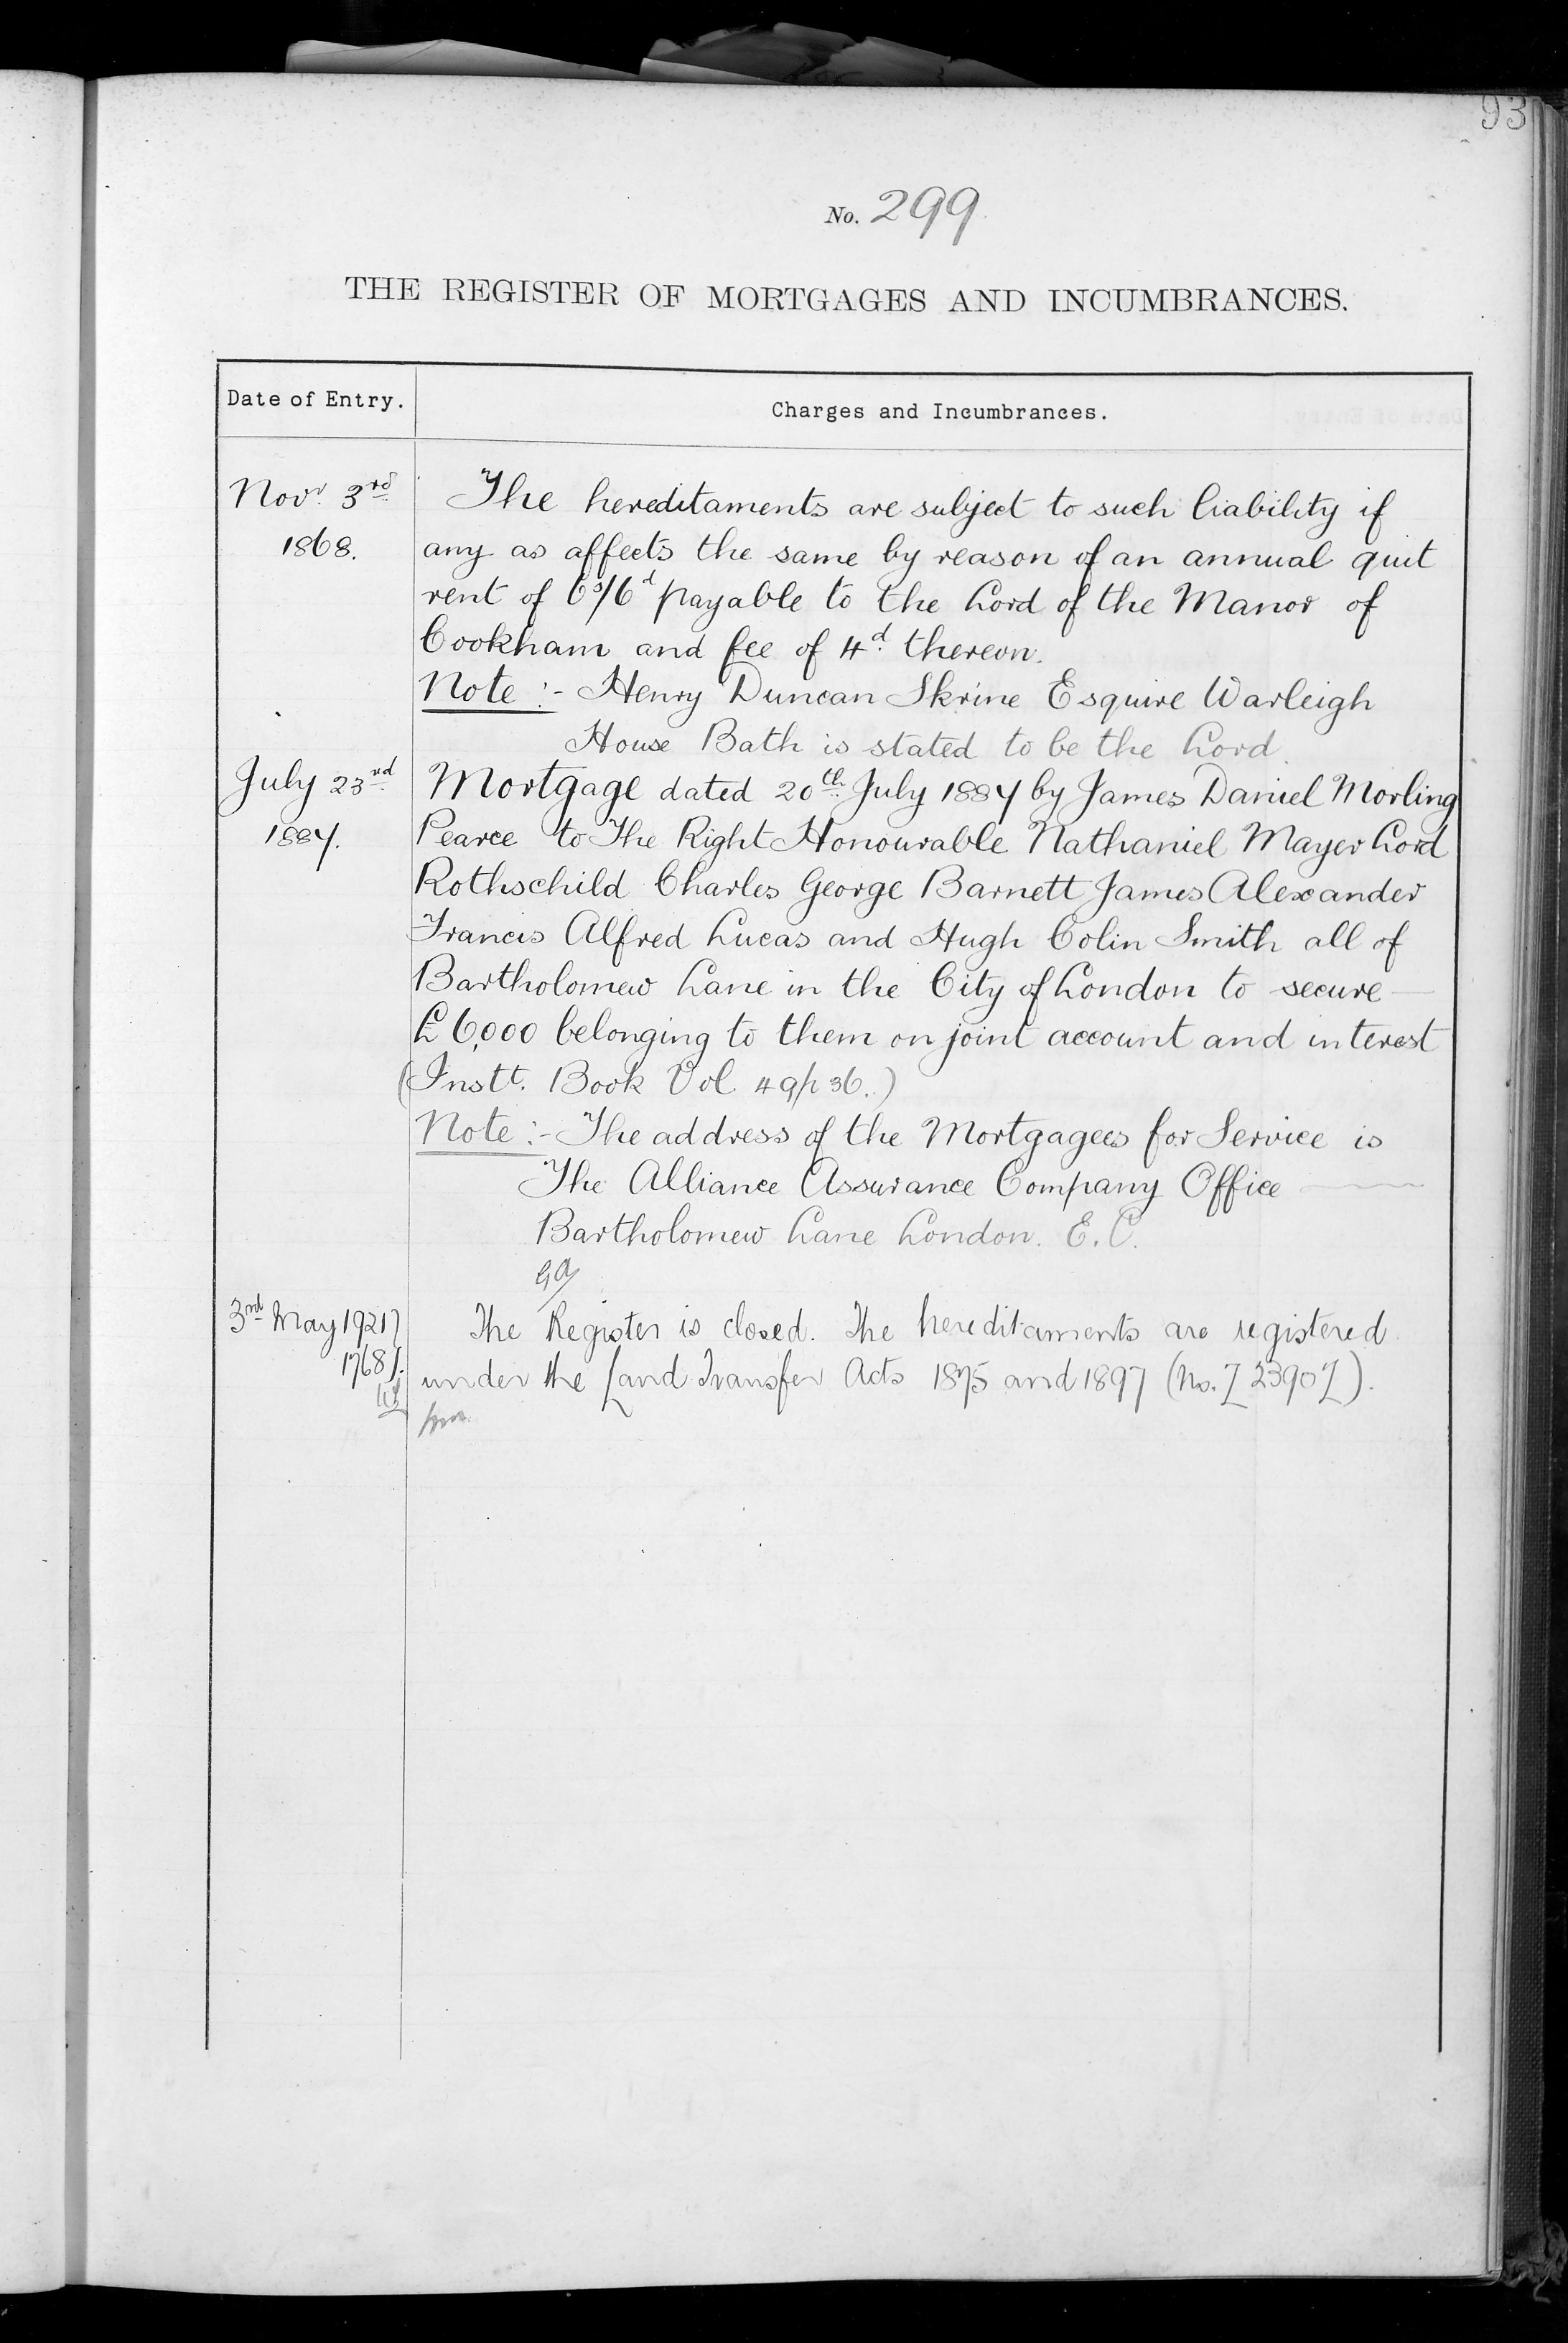 93
No. 299
THE REGISTER OF MORTGAGES AND INCUMBRANCES.
Date of Entry.
Charges and Incumbrances.
Novr. 3rd
1868.
The hereditaments are subject to such liability if
any as affects the same by reason of an annual quit
rent of 6s/6d payable to the Lord of the Manor of
Cookham and fee of 4d. thereon.
Note :- Henry Duncan Skrine Esquire Warleigh
House Bath is stated to be the Lord.
July 23rd
1887.
Mortgage dated 20th July 1887 by James Daniel Morling
Pearce to The Right Honourable Nathaniel Mayer Lord
Rothschild Charles George Barnett James Alexander
Francis Alfred Lucas and Hugh Colin Smith all of
Bartholomew Lane in the City of London to secure
£6,000 belonging to them on joint account and interest
(Instt. Book Vol. 49 p 36.)
Note :- The address of the Mortgagees for Service is
The Alliance Assurance Company Office
Bartholomew Lane London. E.C.
3rd May 1921
1768
The Register is closed. The hereditaments are registered
under the Land Transfer Acts 1875 and 1897 (No. 2390).